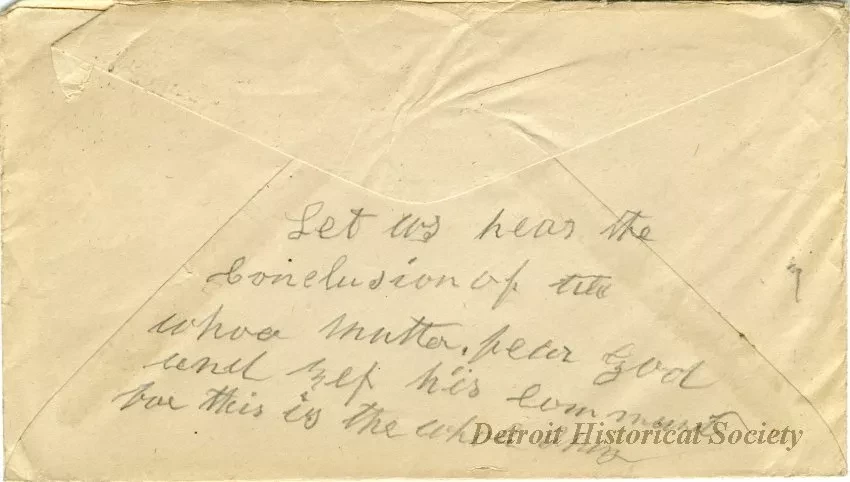 Let us hear the
Conclusion of the
whoe matter. fear God
and kef his command
for this is the
Detroit Historical Society